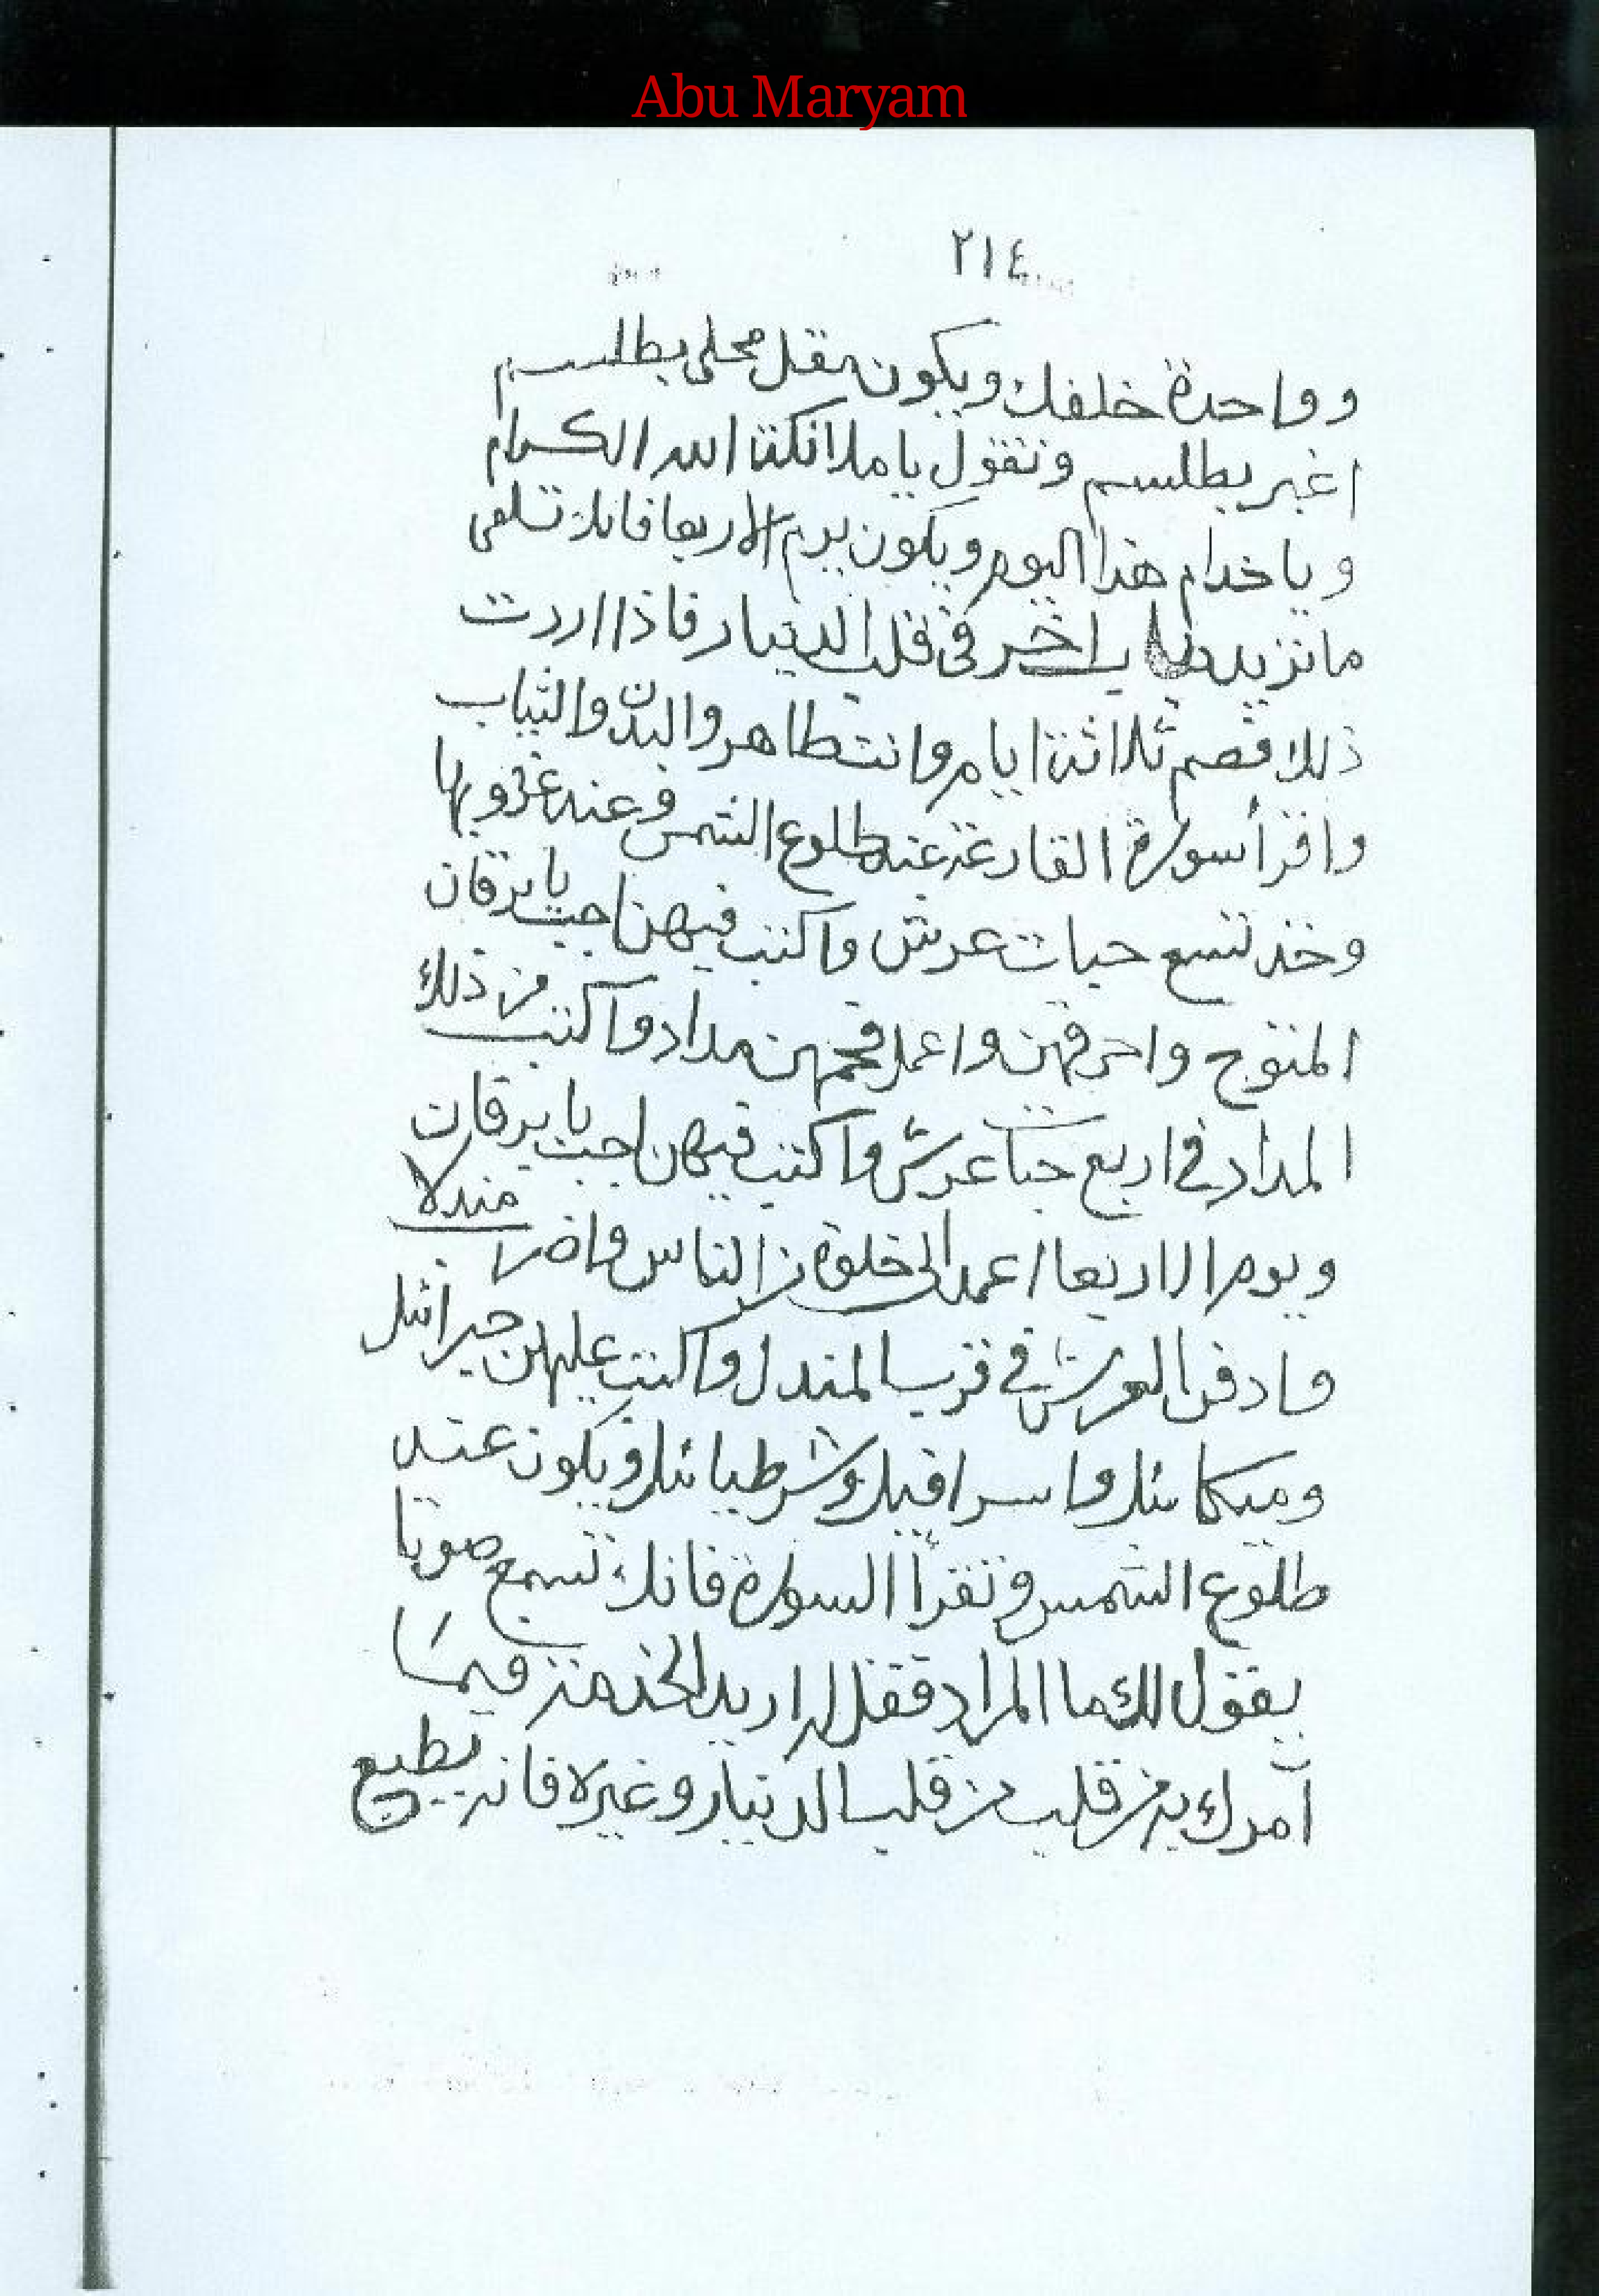 Abu Maryam
٢١٤
وواحدة خلفك ويكون مقل محلى يطلسم
اغبر يطلسم وتقول يا ملائكة الله الكرام
ويا خدام هذا اليوم ويكون يوم الاربعا فانك تلقى
ما تريد باب اخر فى قلب الدينار فاذا اردت
ذلك فصم ثلاثة ايام وانت طاهر والبدن والثياب
واقرأ سورة القارعة عند طلوع الشمس وعند غروبها
وخذ تسع حبات عرش واكتب فيهن اجب يا برقان
المتوج واحرقهن واعمل فحمهن مداد واكتب من ذلك
المداد في اربع حبات عرش واكتب فيهن اجب يا برقان
ويوم الاربعا اعمد الى خلوة من الناس مندلا
وادفن العرش في قرب المندل واكتب عليهن جبرائيل
وميكائيل واسرافيل وشرطيائيل ويكون عند
طلوع الشمس وتقرأ السورة فانك تسمع صوتا
يقول لك ما المراد فقل له اريد الخدمة فيما
آمرك به من قلب من قلب الدينار وغيره فانه يطيع